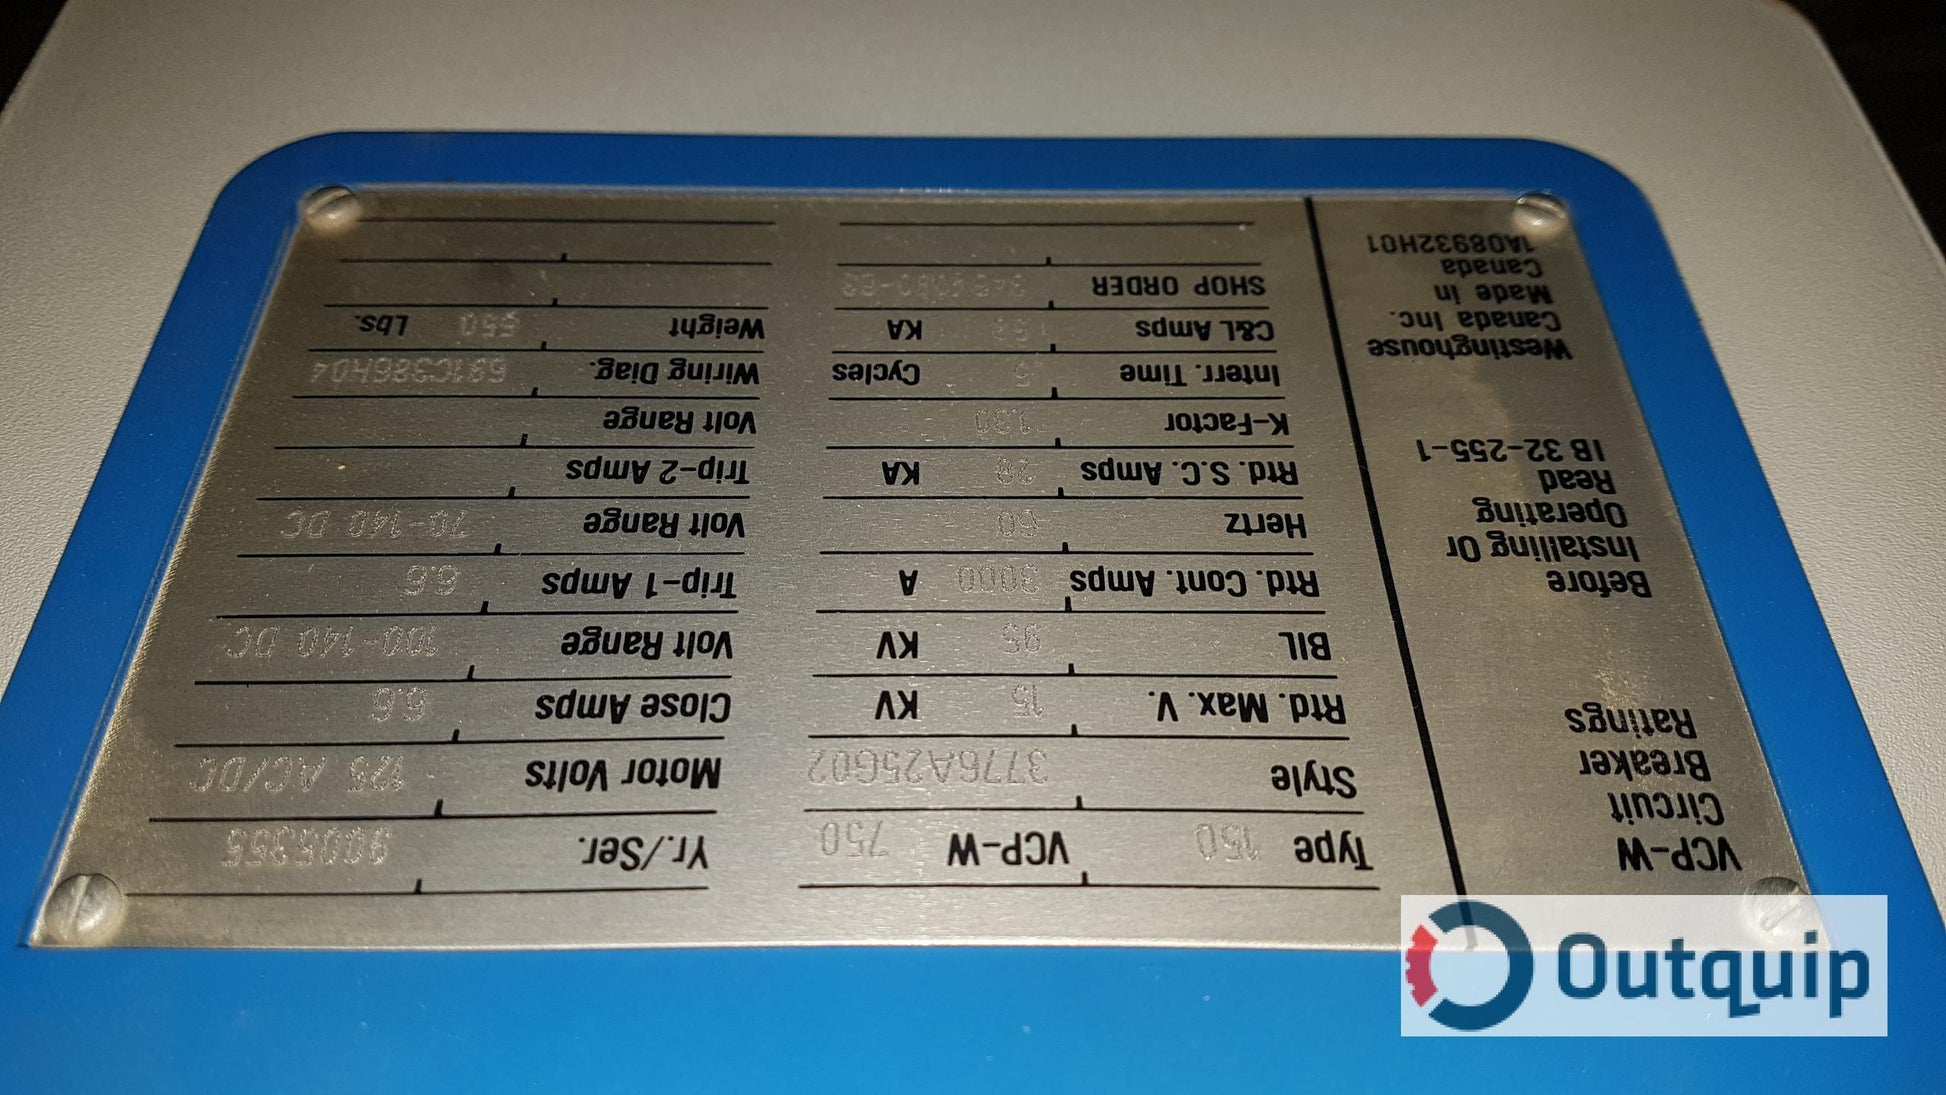 VCP-W
Circuit
Breaker
Ratings
Before
Installing Or
Operating
Read
IB 32-255-1
Westinghouse
Canada Inc.
Made in
Canada
1A08932H01
Type 150 VCP-W 750
Style 3776A25G02
Rtd. Max. V. 15 KV
BIL 95 KV
Rtd. Cont. Amps 3000 A
Hertz 60
Rtd. S.C. Amps 28 KA
K-Factor 1.30
Interr. Time 5 Cycles
C&L Amps KA
SHOP ORDER
Yr./Ser. 9005355
Motor Volts 125 AC/DC
Close Amps 6.6
Volt Range 100-140 DC
Trip-1 Amps 6.6
Volt Range 70-140 DC
Trip-2 Amps
Volt Range
Wiring Diag. 691C386H04
Weight 550 Lbs.
Outquip